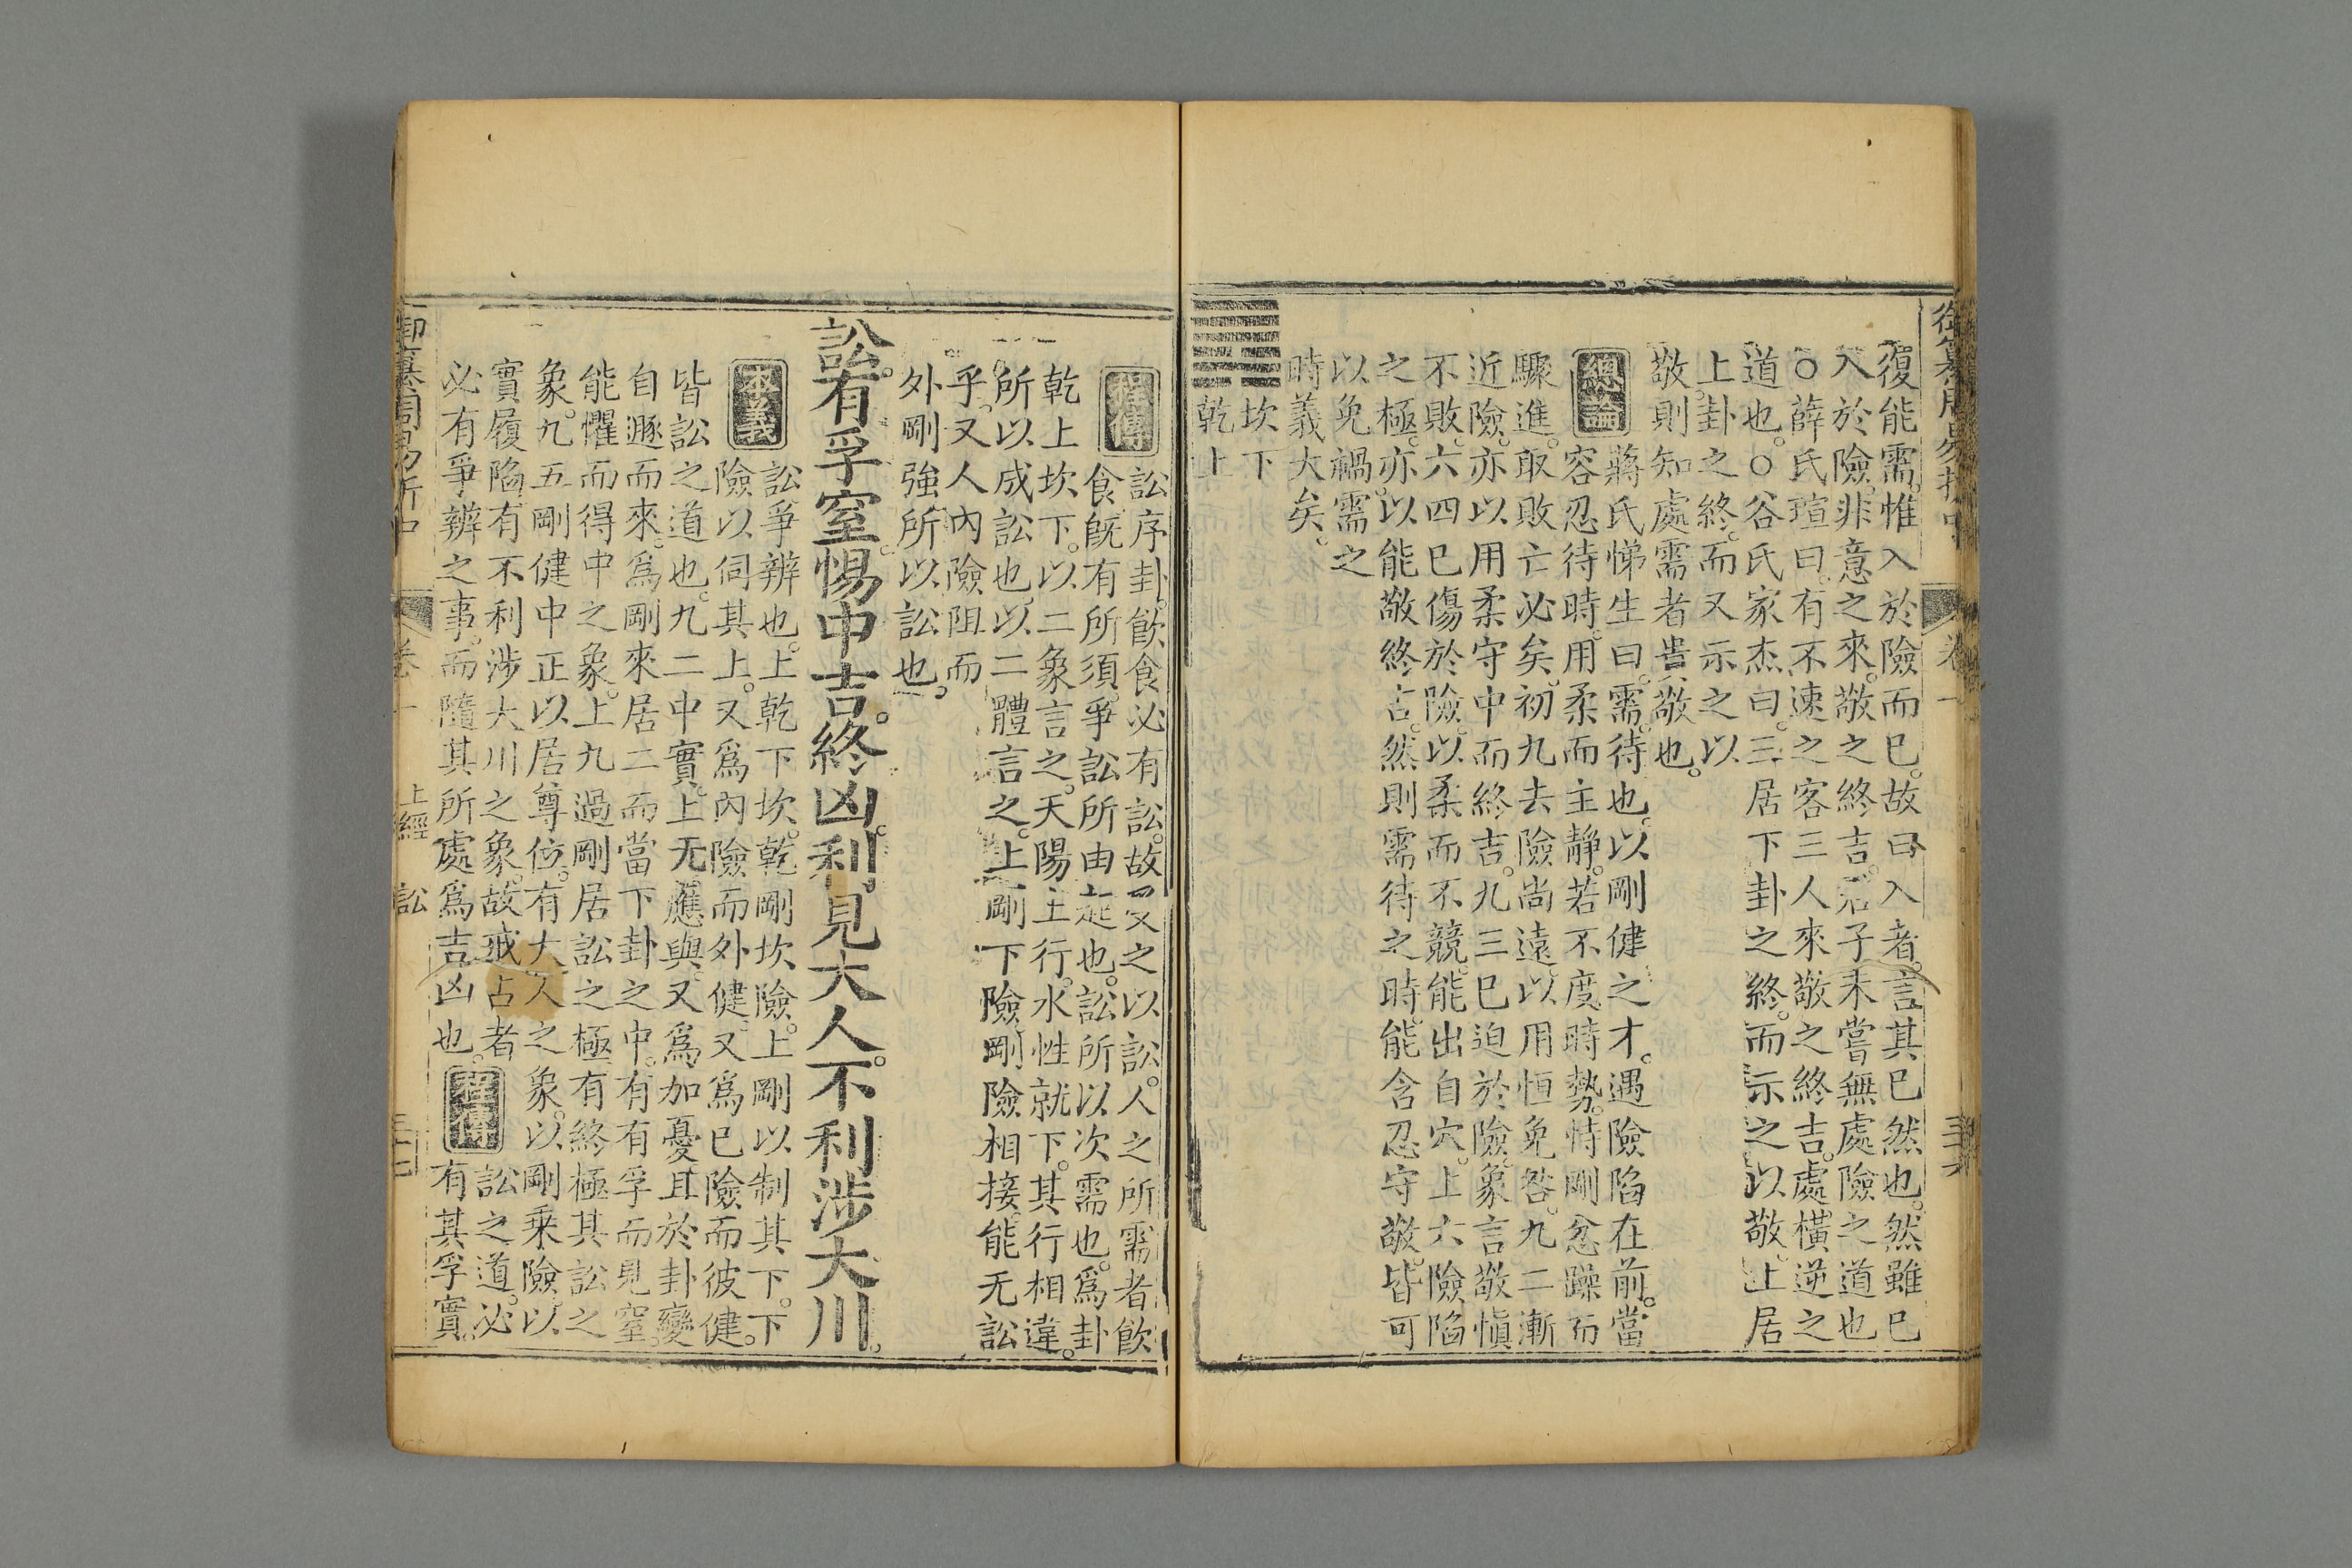 御纂周易折中 卷一 三十六
復能需。惟入於險而已。故曰入者。言其已然也。然雖已
入於險。非意之來。敬之終吉。君子未嘗無處險之道也
○薛氏瑄曰。有不速之客三人來敬之終吉。處橫逆之
道也。○谷氏家杰曰。三居下卦之終。而示之以敬。上居
上卦之終。而又示之以
敬。則知處需者貴敬也。
總論 蔣氏悌生曰。需。待也。以剛健之才。遇險陷在前。當
容忍待時。用柔而主靜。若不度時勢。恃剛忿躁而
驟進。取敗亡必矣。初九去險尚遠。以用恒免咎。九二漸
近險。亦以用柔守中而終吉。九三已迫於險。象言敬慎
不敗。六四已傷於險。以柔而不競。能出自穴。上六險陷
之極。亦以能敬終吉。然則需待之時。能含忍守敬。皆可
以免禍。需之
時義大矣。
坎下
乾上
程傳 訟序卦。飲食必有訟。故受之以訟。人之所需者飲
食。旣有所須。爭訟所由起也。訟所以次需也。爲卦
乾上坎下。以二象言之。天陽上行。水性就下。其行相違。
所以成訟也。以二體言之。上剛下險。剛險相接。能无訟
乎。又人內險阻而
外剛強。所以訟也。
訟。有孚窒。惕中吉。終凶。利見大人。不利涉大川。
本義 訟。爭辨也。上乾下坎。乾剛坎險。上剛以制其下。下
險以伺其上。又爲內險而外健。又爲己險而彼健。
皆訟之道也。九二中實。上无應與。又爲加憂。且於卦變
自遯而來。爲剛來居二。而當下卦之中。有有孚而見窒。
能懼而得中之象。上九過剛居訟之極。有終極其訟之
象。九五剛健中正以居尊位。有大人之象。以剛乘險。以
實履陷。有不利涉大川之象。故戒占者
必有爭辨之事。而隨其所處爲吉凶也。 程傳 訟之道。必
有其孚實。
御纂周易折中 卷一 上經 訟 三十七